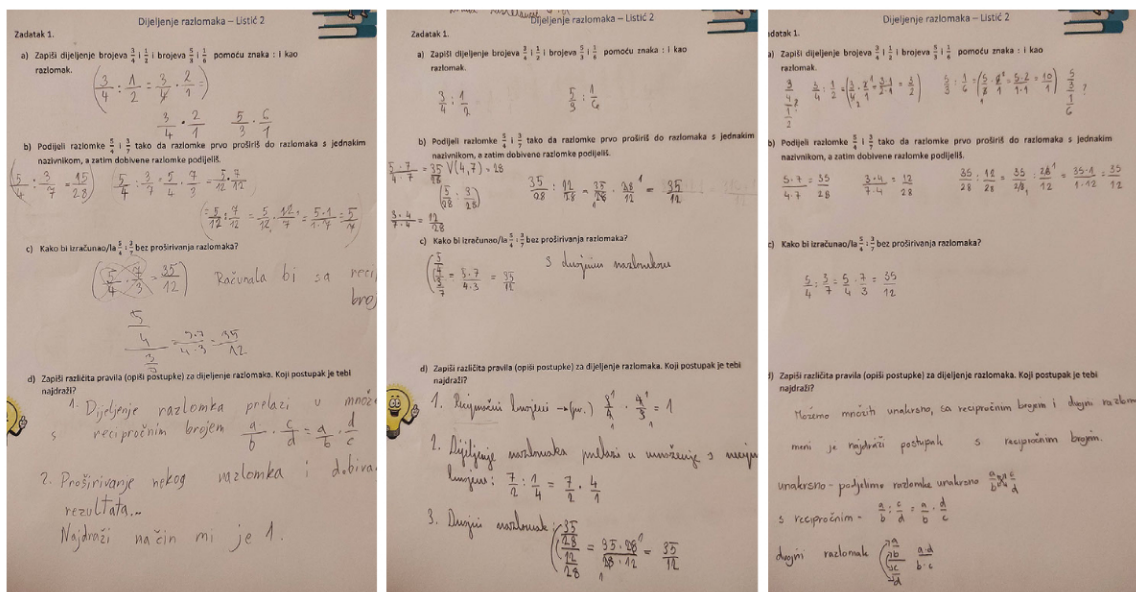 Dijeljenje razlomaka – Listić 2
Zadatak 1.
a) Zapiši dijeljenje brojeva 3/4 i 1/2 i brojeva 5/3 i 1/6 pomoću znaka : i kao
razlomak.
(3/4 : 1/2 = 3/4 · 2/1 =)
3/4 · 2/1   5/3 · 6/1
b) Podijeli razlomke 5/4 i 3/7 tako da razlomke prvo proširiš do razlomaka s jednakim
nazivnikom, a zatim dobivene razlomke podijeliš.
(5/4 : 3/7 = 15/28)   (5/4 : 3/7 = 5/4 · 7/3 = 5/12 · 7/12
(= 5/12 : 7/12 = 5/12 · 12/7 = 5·1/1·7 = 5/7)
c) Kako bi izračunao/la 5/4 : 3/7 bez proširivanja razlomaka?
(5/4 · 7/3 = 35/12)   Računala bi sa reci
broj
5/4 / 3/7 = 5·7/4·3 = 35/12
d) Zapiši različita pravila (opiši postupke) za dijeljenje razlomaka. Koji postupak je tebi
najdraži?
1. Dijeljenje razlomka prelazi u množe
s recipročnim brojem a/b · c/d = a/b · d/c
2. Proširivanje nekog razlomka i dobiva
rezultata...
Najdraži način mi je 1.
Dijeljenje razlomaka – Listić 2
Zadatak 1.
a) Zapiši dijeljenje brojeva 3/4 i 1/2 i brojeva 5/3 i 1/6 pomoću znaka : i kao
razlomak.
3/4 : 1/2   5/3 : 1/6
b) Podijeli razlomke 5/4 i 3/7 tako da razlomke prvo proširiš do razlomaka s jednakim
nazivnikom, a zatim dobivene razlomke podijeliš.
5·7/4·7 = 35/28 V(4,7) = 28
(5/28 : 3/28)   35/28 : 12/28 = 35/28 · 28/12 = 35/12
3·4/7·4 = 12/28
c) Kako bi izračunao/la 5/4 : 3/7 bez proširivanja razlomaka?
(5/4 / 3/7 = 5·7/4·3 = 35/12   s dvojnim razlomkom
d) Zapiši različita pravila (opiši postupke) za dijeljenje razlomaka. Koji postupak je tebi
najdraži?
1. Recipročni brojevi → (pr.) 3/4 · 4/3 = 1
2. Dijeljenje razlomaka prelazi u množenje s recipr
brojem: 7/2 : 1/4 = 7/2 · 4/1
3. Dvojni razlomak: (35/28 / 12/28 = 35·28/28·12 = 35/12
Dijeljenje razlomaka – Listić 2
datak 1.
a) Zapiši dijeljenje brojeva 3/4 i 1/2 i brojeva 5/3 i 1/6 pomoću znaka : i kao
razlomak.
3/4 / 1/2 ?   3/4 : 1/2 = (3/4 · 2/1 = 3·1/2·1 = 3/2)   5/3 : 1/6 = (5/3 · 6/1 = 5·2/1·1 = 10/1)   5/3 / 1/6 ?
b) Podijeli razlomke 5/4 i 3/7 tako da razlomke prvo proširiš do razlomaka s jednakim
nazivnikom, a zatim dobivene razlomke podijeliš.
5·7/4·7 = 35/28   3·4/7·4 = 12/28   35/28 : 12/28 = 35/28 · 28/12 = 35·1/1·12 = 35/12
c) Kako bi izračunao/la 5/4 : 3/7 bez proširivanja razlomaka?
5/4 : 3/7 = 5/4 · 7/3 = 35/12
d) Zapiši različita pravila (opiši postupke) za dijeljenje razlomaka. Koji postupak je tebi
najdraži?
Možemo množiti unakrsno, sa recipročnim brojem i dvojni razlom
meni je najdraži postupak s recipročnim brojem.
unakrsno - podjelimo razlomke unakrsno a/b c/d
s recipročnim - a/b : c/d = a/b · d/c
dvojni razlomak (a/b / c/d   a·d/b·c